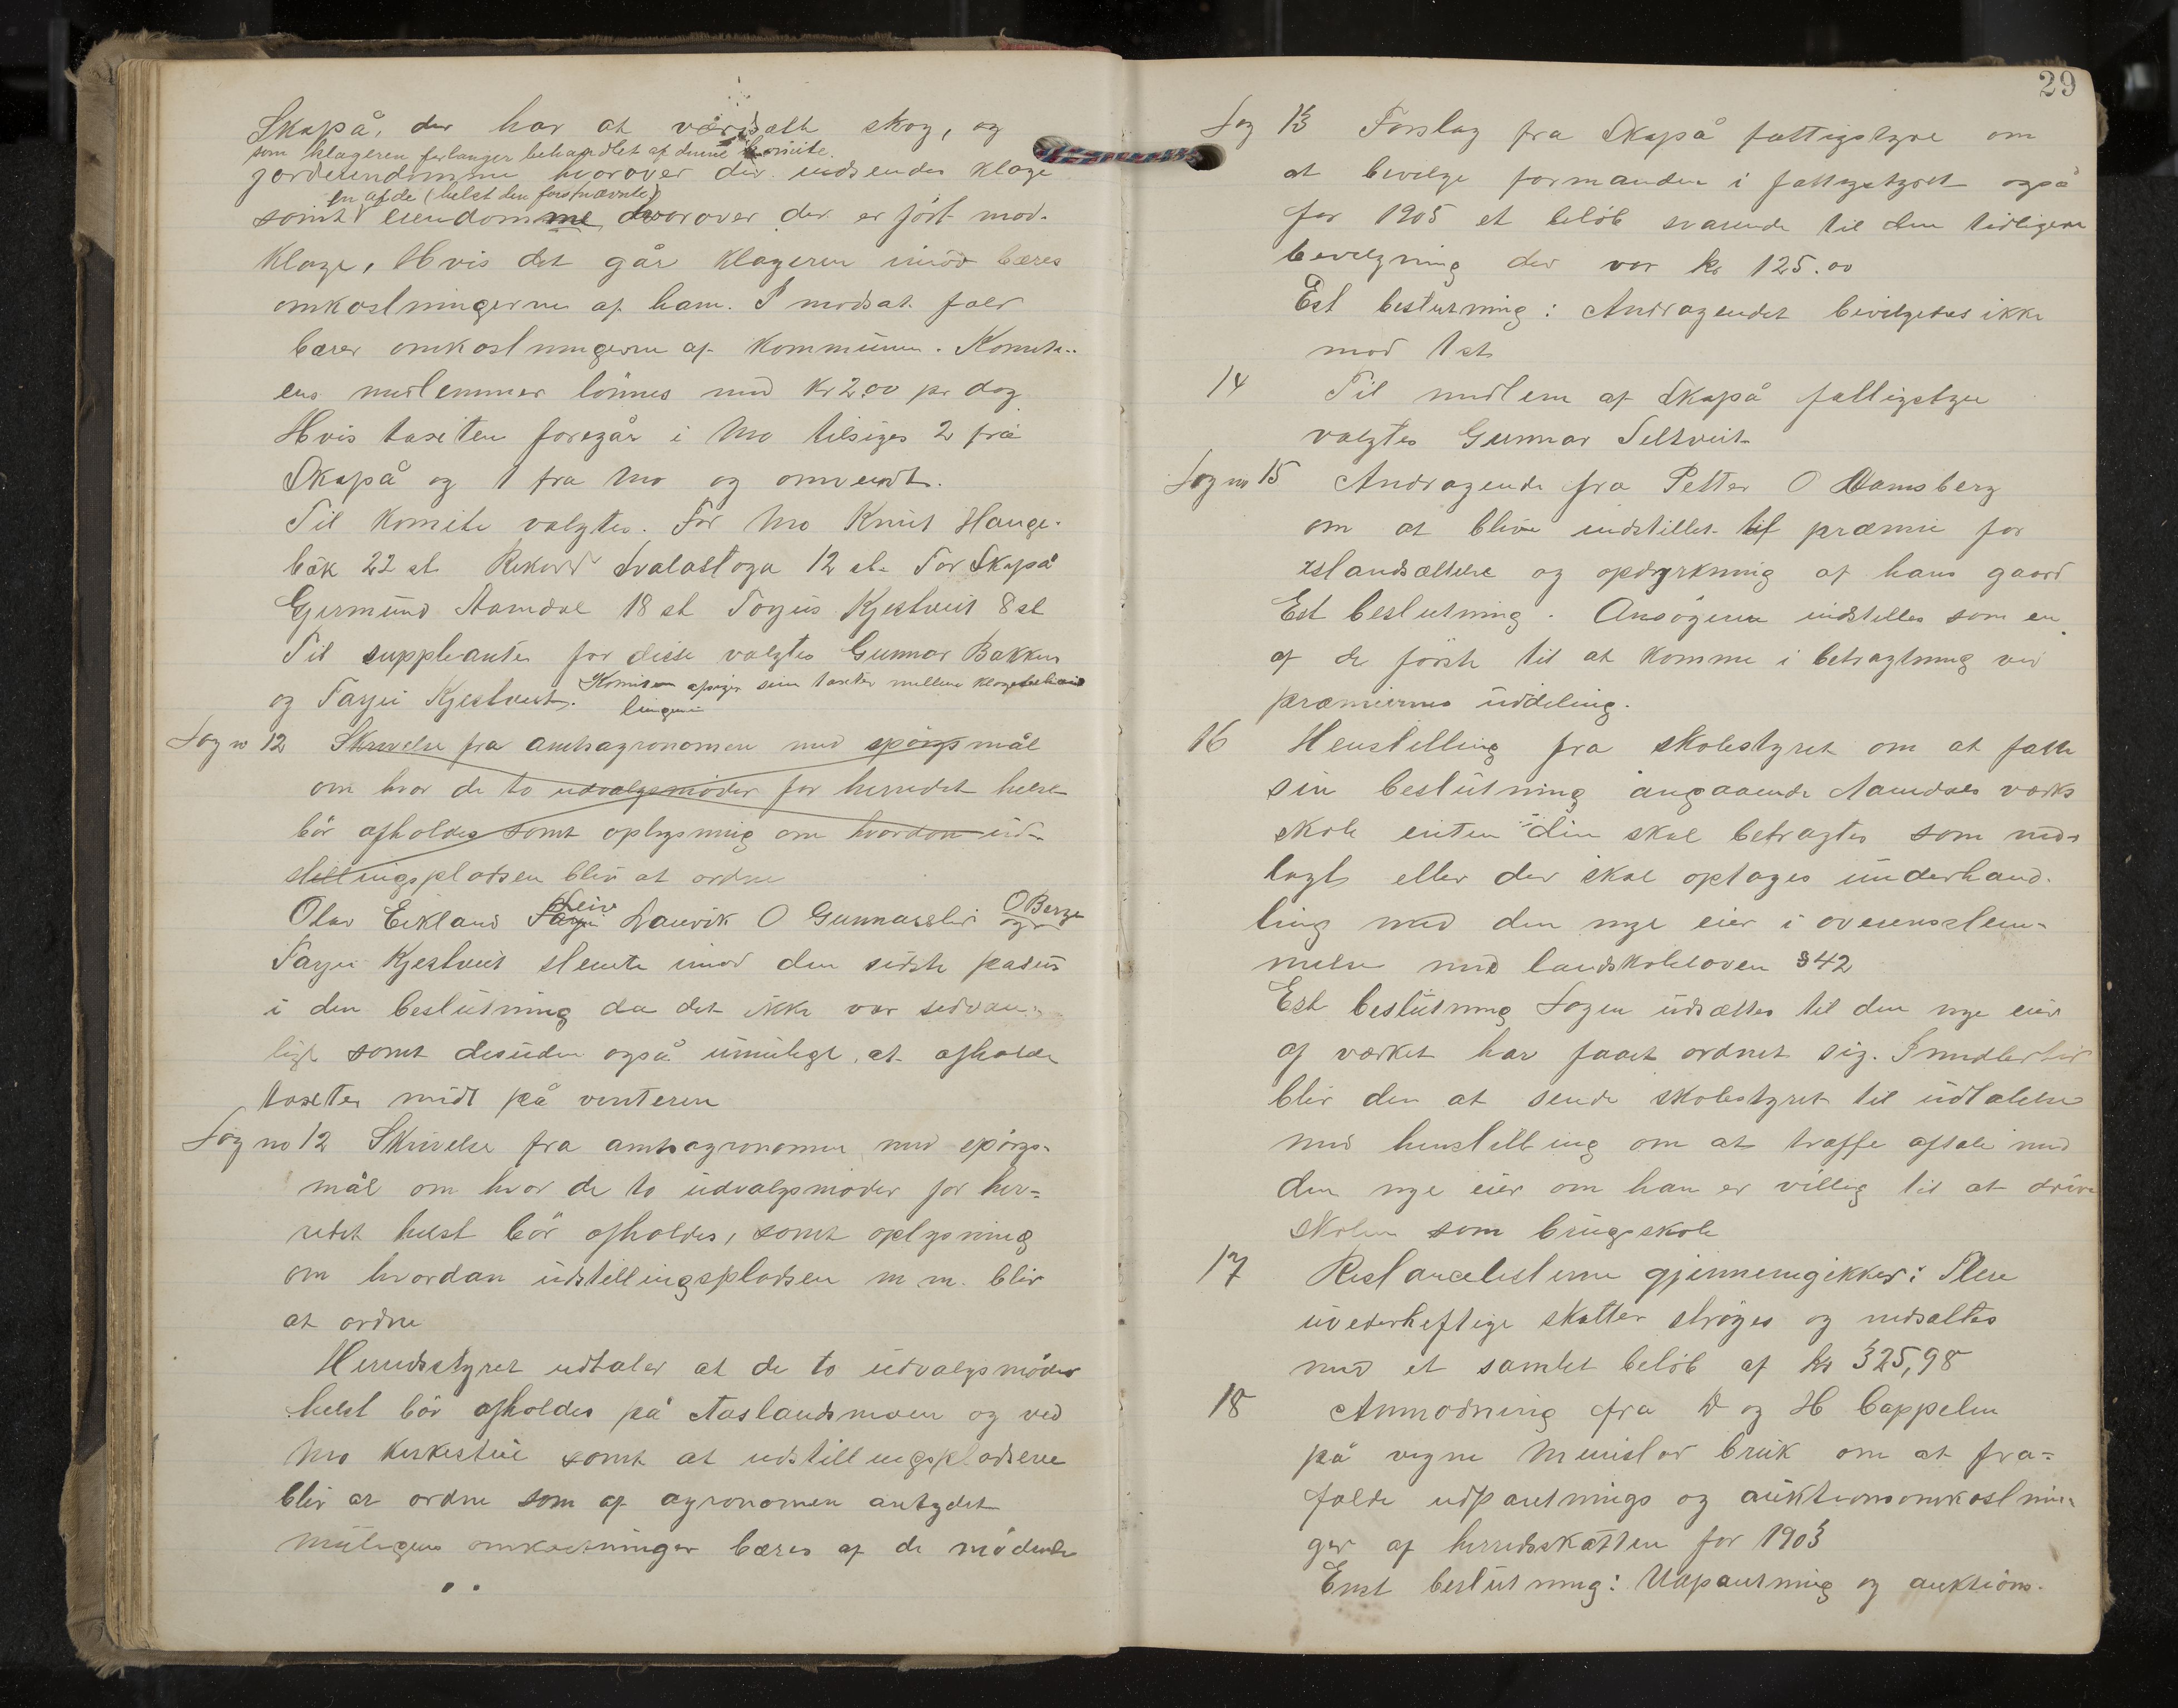 Skapå, der har at værdsætte skog, og
som klageren forlanger behandlet af denne komite.
jordeiendomme hvorover der indsendes klage
en af de (helst den førstnævnte)
samt eiendomme hvorover der er ført mod-
klage, Hvis det går klageren imod bæres
omkostningerne af ham. I modsat fald
bæres omkostningerne af kommunen. Komite-
ens medlemmer lønnes med Kr 2.00 pr dag
Hvis taxten foregår i Mo tilsiges 2 fra
Skapå og 1 fra Mo og omvendt.
Til komite valgtes. For Mo Knut Hauge-
bäk 22 st Rikard Svalastoga 12 st. For Skapå
Germund Aamdal 18 st Torjus Kjestveit 8 st
Til suppleanter for disse valgtes Gunnar Bakken
og Tarjei Kjestveit. Komiteen afgiver sine taxter mellem klagebehand
lingerne
Sag no 12 Skrivelse fra amtsagronomen med spørgsmål
om hvor de to udvalgsmøder for herredet helst
bør afholdes samt oplysning om hvordan ud-
stillingspladsen blir at ordne
Olav Eikland Tarjei Leiv Lauvik O Gunnarsli og O Berge
Tarjei Kjestveit stemte imod den sidste passus
i den beslutning da det ikke var sedvan-
ligt samt desuden også umuligt at afholde
taxter midt på vinteren
Sag no 12 Skrivelse fra amtsagronomen med spørgs-
mål om hvor de to udvalgsmøder for her-
redet helst bør afholdes, samt oplysning
om hvordan udstillingspladsen m m. blir
at ordne
Herredsstyret udtaler at de to udvalgsmøder
helst bør afholdes på Aaslandsmoen og ved
Mo kirkestue samt at udstillingspladsene
blir at ordne som af agronomen antydet
Muligens omkostninger bæres af de mødende
29
Sag 13 Forslag fra Skapå fattigstyre om
at bevilge formanden i fattigstyret også
for 1905 et beløb svarende til den tidligere
bevilgning der var kr 125.00
Est beslutning: Andragendet bevilgedes ikke
mod 1 st
14 Til medlem af Skapå fattigstyre
valgtes Gunnar Seltveit
Sag no 15 Andragende fra Petter O Ramsberg
om at blive indstillet til præmie for
istandsættelse og opdyrkning af hans gaard
Est beslutning. Ansøgeren indstilles som en
af de første til at komme i betragtning ved
præmiernes uddeling.
16 Henstilling fra skolestyret om at fatte
sin beslutning angaaende Aamdals værks
skole enten den skal betragtes som ned-
lagt eller der skal optages underhand-
ling med den nye eier i overensstem-
melse med landskoleloven §42
Est beslutning Sagen udsættes til den nye eier
af værket har faaet ordnet sig. Imidlertid
blir den at sende skolestyret til udtalelse
med henstilling om at træffe aftale med
den nye eier om han er villig til at drive
skolen som brugsskole
17 Restancelisterne gjennemgikkes: Flere
uvederheftige skatter strøges og nedsattes
med et samlet beløb af kr 325,98
18 Anmodning fra D og H Cappelen
på vegne Meuslar bruk om at fra-
falde udpantnings og auktionsomkostnin-
ger af herredsskatten for 1903
Enst beslutning: Udpantning og auktions-